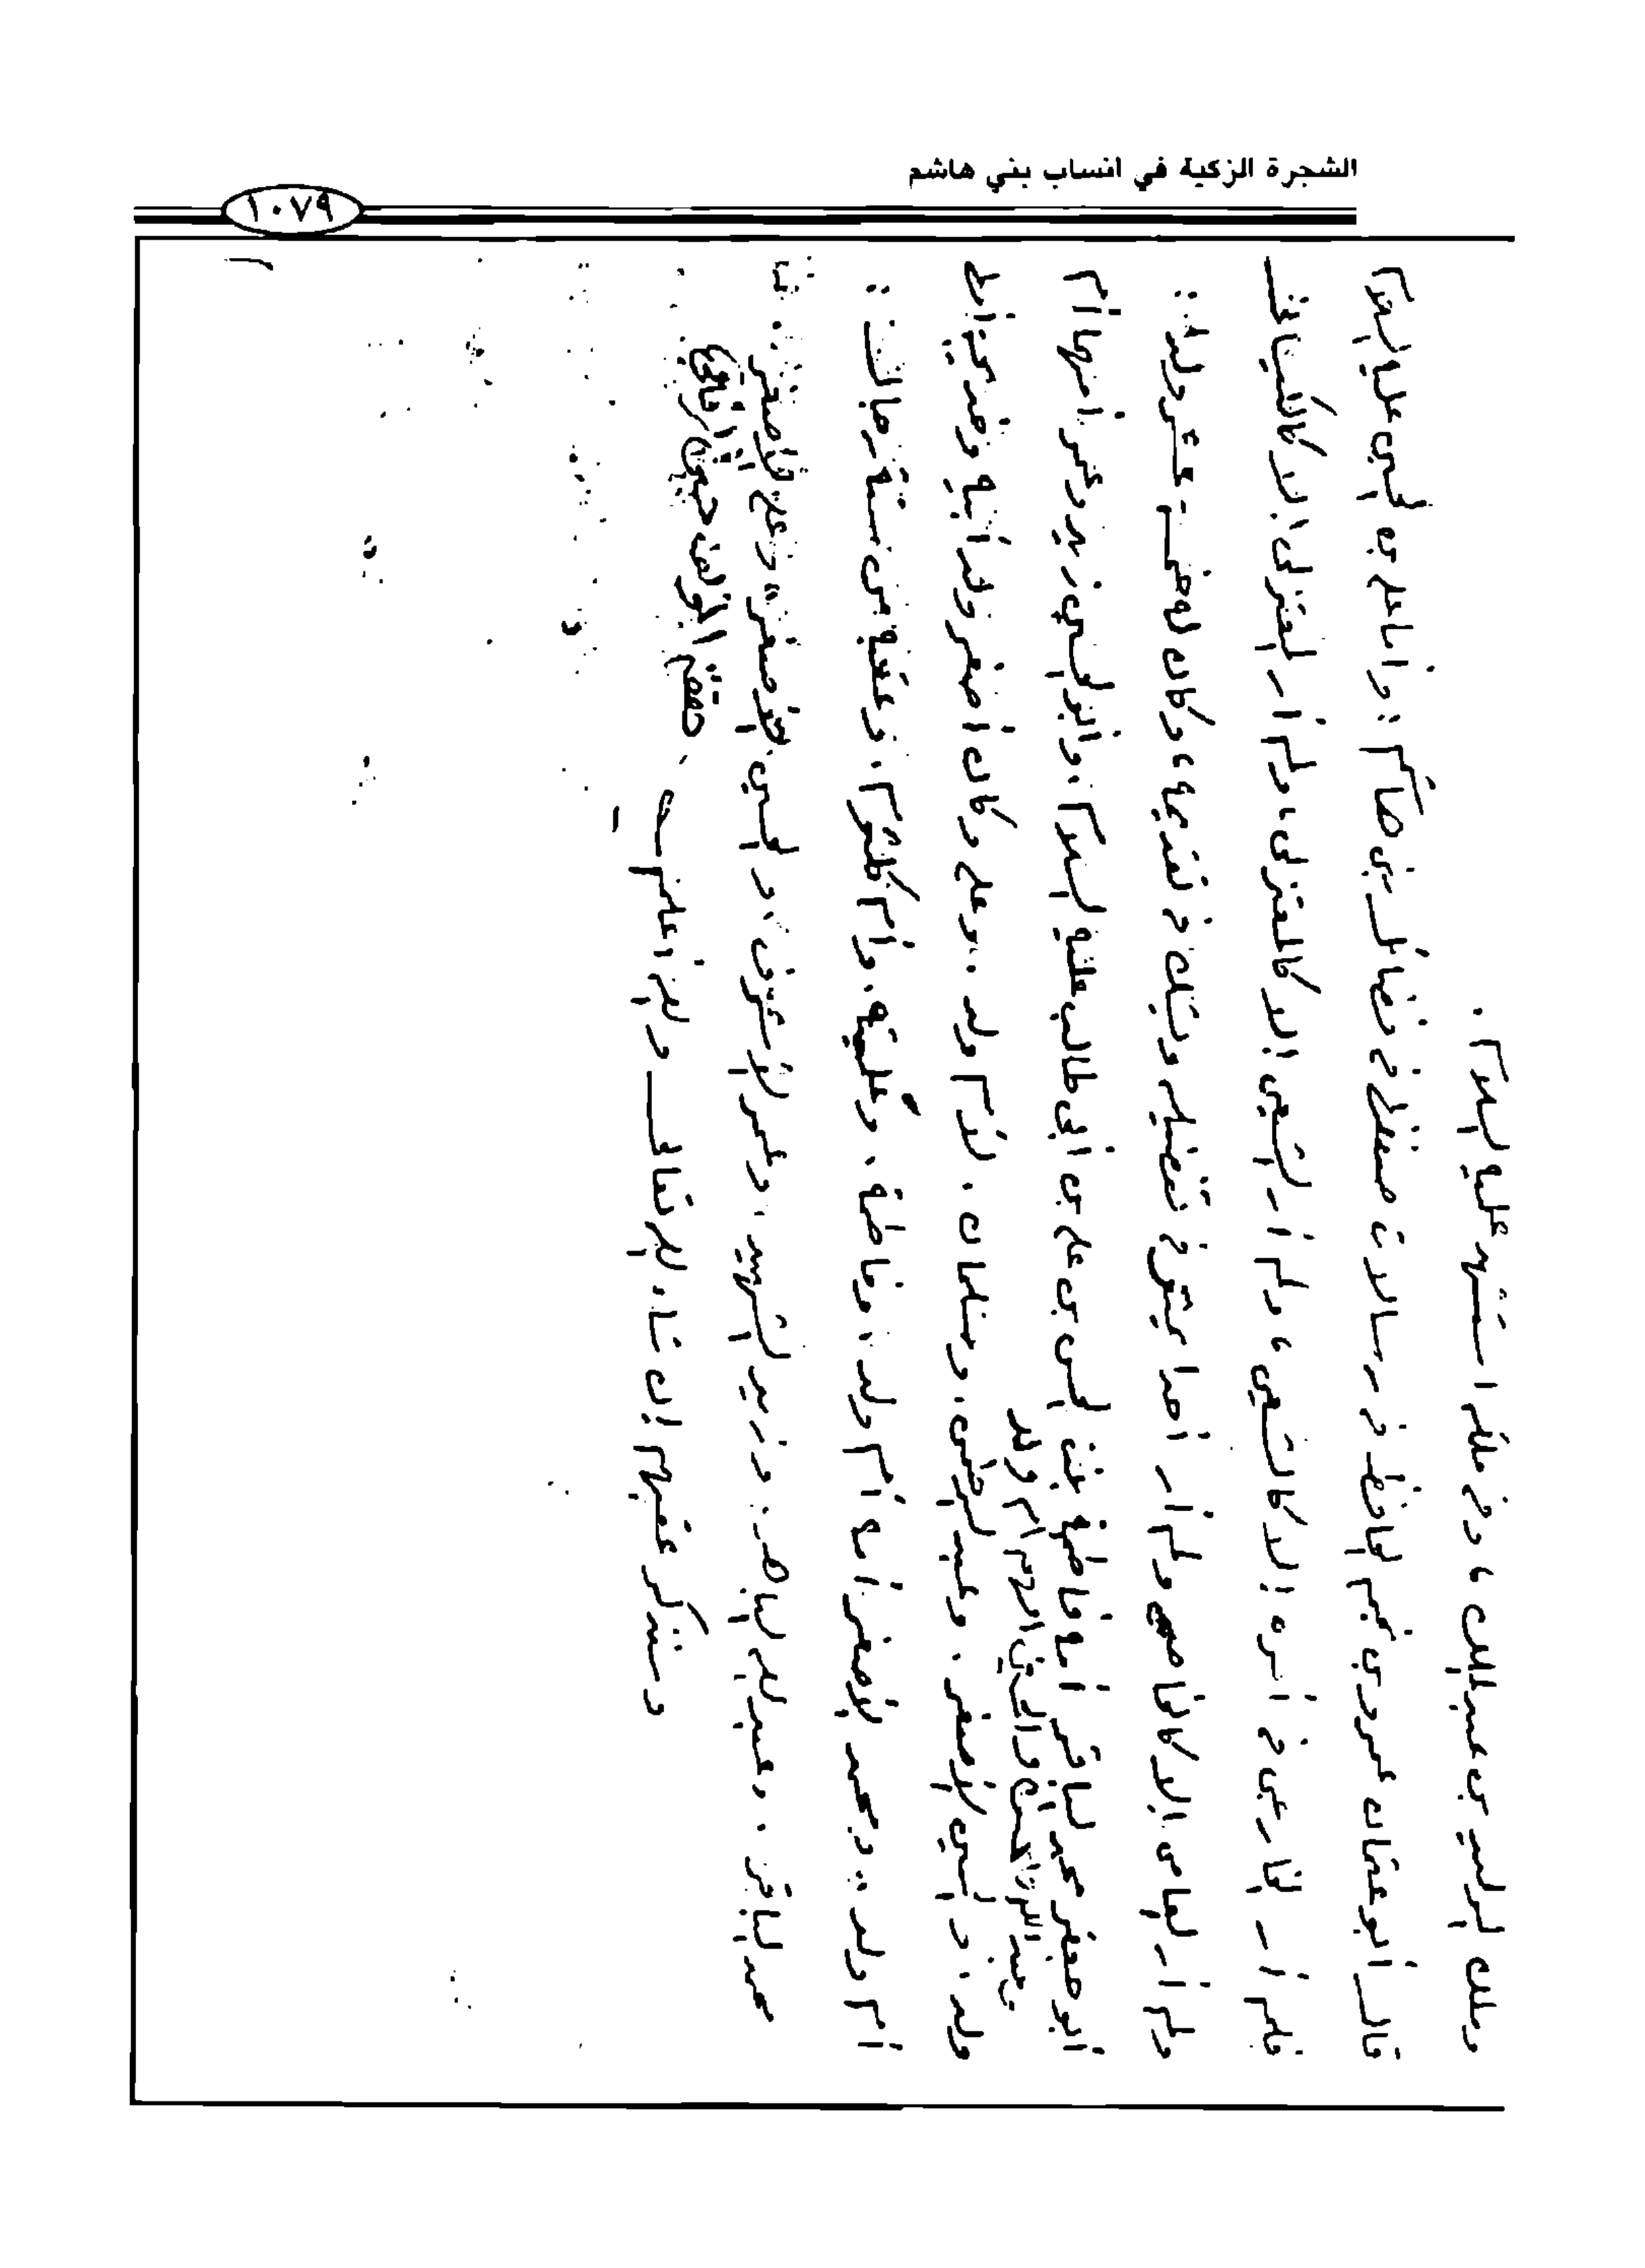 الشجرة الزكية في انساب بني هاشم
١٠٧٩
وملك الوليد بن عبد الملك ، وفي ملكه استشهد عليه السلام .
قال أبو عثمان عمرو بن بحر الحافظ في رسالة صنفها في فضائل بني هاشم : وأما علي بن الحسين عليه السلام
فلم أر الخارجي في أمره إلا كالشيعي ، ولم أر الشيعي إلا كالمعتزلي ، ولم أر المعتزلي إلا كالعامي
ولم أر العامي إلا كالخاصي ولم أر أحدا يتمرى في تفضيله ويشك في تقديمه ، وكان له خمسة عشر ولدا :
أبو جعفر محمد الباقر أمه فاطمة بنت الحسن بن علي بن أبي طالب عليه السلام ، وأبو الحسين زيد وعمر أمهما أم
عبد الله والحسن والحسين أمهم أم ولد
ولد ، والحسين الأصغر . وعبد الرحمن . وسليمان . لأم ولد .. وعلي وكان أصغر ولد أبيه
أم ولد .. ومحمد الأصغر أمه أم ولد ، وفاطمة . وعلية . وأم كلثوم . وعقبه من ستة رجال :
محمد الباقر . وعبد الله الباهر . وزيد الشهيد . وعمر الأشرف . والحسين الأصغر ، وعلي الأصغر
وسنذكر عقبهم إن شاء الله تعالى والله أعلم